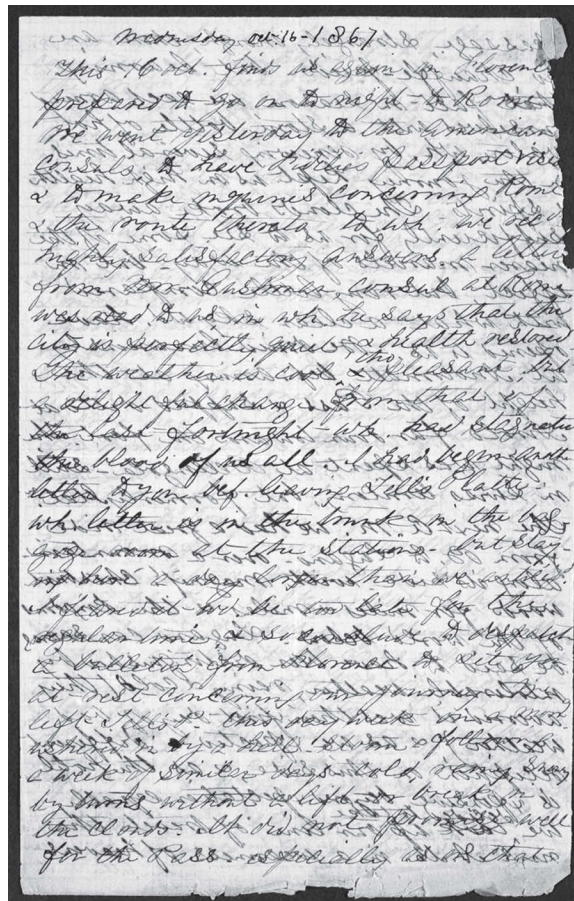 Wednesday oct. 16 - 1867
This 16 oct. finds us again in Florence
prepared to go on to night - to Rome
We went yesterday to the American
Consuls to have passport visé
& to make inquiries concerning Rome
& the route thereto to wh. we rec'd
highly satisfactory answers. A letter
from Mr. Cushman, consul at Rome
was read to us in wh. he says that the
city is perfectly quiet & health restored
The weather is cool tho & pleasant
a delightful change from that of
the last fortnight wh. had stagnated
the blood of us all. I had begun another
letter to you bef. leaving
wh. letter is in the trunk in the bag-
gage room at the station - but stay-
ing a day longer than we
too late for
regular & so to despatch
a bulletin from Florence to set you
at rest concerning
left this day week
ushered in by a hail storm & followed
a week of similar days cold rainy
by turns without a lift or break in
the clouds. It did not promise well
for the Pass especially as